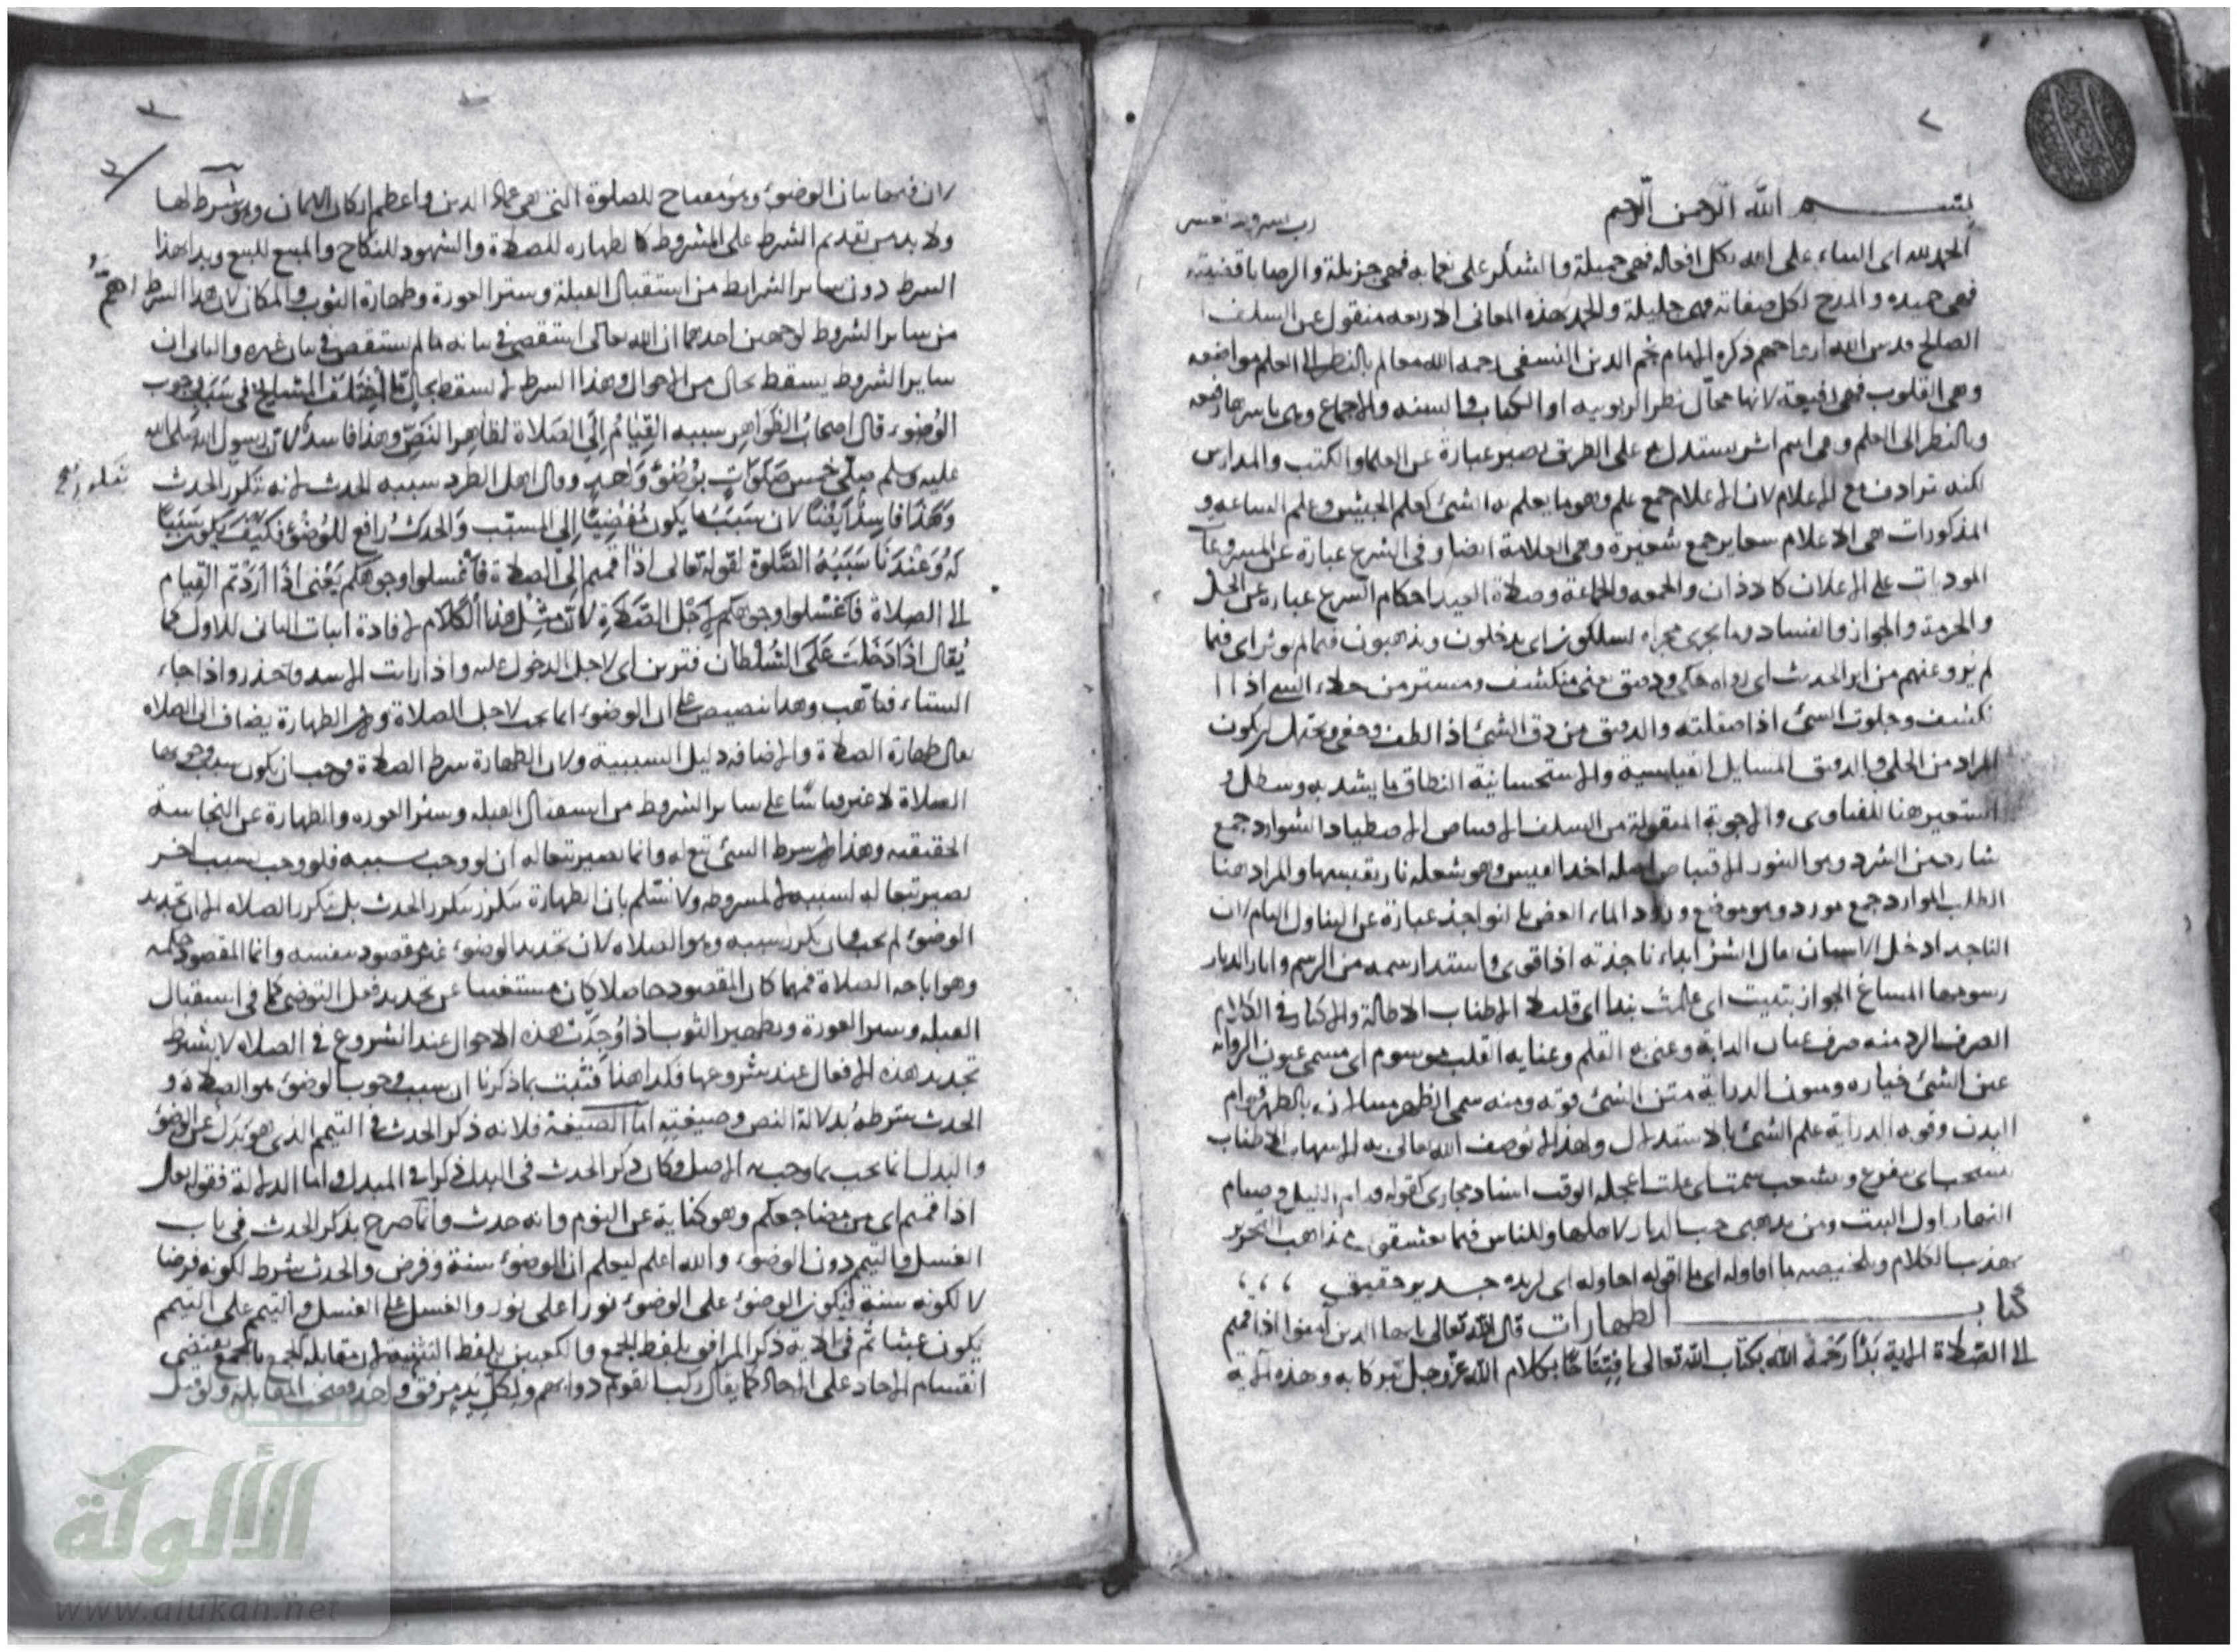 ٢
بسم الله الرحمن الرحيم
الحمد لله اى الثناء على الله بكل افعاله فهى جميلة والشكر على نعمايه فهى جزيلة والرضا باقضيته
فهى حميده والمدح لكل صفاته فهى جليلة والحمد بهذه المعانى الاربعه منقول عن السلف
الصالح قدس الله ارواحهم ذكره الامام نجم الدين النسفى رحمه الله معالم بالنظر الى العلم مواضعه
وهى القلوب فهى رفيعة لانها محال نظر الربوبيه او الكتاب والسنه والاجماع وهى باسرها رفيعه
وبالنظر الى العلم وهى اسم اثر يستدل به على الطريق يصير عبارة عن العلما والكتب والمدارس
لكنه ترادف مع الاعلام لان الاعلام جمع علم وهو ما يعلم به الشئ كعلم الجيش وعلم الساعه و
المذكورات هى الاعلام شعاير جمع شعيرة وهى العلامة ايضا وفى الشرع عبارة عن المشروعات
المؤديات على الاعلان كالاذان والجمعه والجماعة وصلاة العيد احكام الشرع عبارة عن الحل
والحرمة والجواز والفساد وما يجرى مجراه يسلكون اى يدخلون ويذهبون فيما لم يوثر اى فيما
لم يرو عنهم من اثر الحديث اى رواه جلى ودقيق يعنى منكشف ومستتر من جلاء السيف اذا
كشف وجلوت الشئ اذا صقلته والدقيق من دق الشئ اذا لطف وخفى ويحتمل ان يكون
المراد من الجلى والدقيق المسايل القياسية والاستحسانية النطاق ما يشد به وسطك
استعير هنا للفتاوى والاجوبة المنقولة من السلف الاقتناص الاصطياد الشوارد جمع
شارد من الشرد وهو النفور الاقتباس اصله اخذ القبس وهو شعلة نار يقتبسها والمراد هنا
الطلب الموارد جمع مورد وهو موضع ورود الماء العض بالنواجذ عبارة عن التناول التام لان
الناجذ ادخل الاسنان يقال اشتد ناجذته اذا قوى واستد ارسمه من الرسم واثار الديار
رسومها المساغ الجواز تثبت اى نبذا اى قليلا الاطناب الاطالة والاكثار فى الكلام
الصرف الرد منه صرف عنان الدابة وعنى به القلم وعنايه القلب موسوم اى مسمى عيون الروايه
عين الشئ خياره ومتون الدراية متن الشئ قوته ومنه سمى الظهر متنا لان بالظهر قوام
البدن وقوة الدراية علم الشئ بالاستدلال ولهذا لا يوصف الله تعالى به الاسهاب الاطناب
النهار اول البيت ومن مذهبى حب الديار لاهلها وللناس فيما يعشقون مذاهب التحرير
تهذيب الكلام وتلخيصه ما احاوله اى ما اقوله احاوله اى اريده جدير حقيق
كتاب الطهارات قال الله تعالى يا ايها الذين امنوا اذا قمتم
الى الصلاة الاية بدأ رحمه الله بكتاب الله تعالى افتتاحا بكلام الله عز وجل تبركا به وهذه الاية
٣
لان فيها بيان الوضوء وهو مفتاح للصلوة التى هى عماد الدين واعظم اركان الايمان وهو شرط لها
ولا بد من تقديم الشرط على المشروط كالطهاره للصلاة والشهود للنكاح والمبيع للبيع وبدأ بهذا
الشرط دون ساير الشرايط من استقبال القبلة وستر العورة وطهارة الثوب والمكان لان هذا الشرط اهم
من ساير الشروط لوجهين احدهما ان الله تعالى استقصى فى بيانه ما لم يستقص فى بيان غيره والثانى ان
ساير الشروط يسقط بحال من الاحوال وهذا الشرط لا يسقط بحال ثم اختلف المشايخ فى سبب وجوب
الوضوء قال اصحاب الظواهر سببه القيام الى الصلاة لظاهر النص وهذا فاسد لان رسول الله صلى الله
عليه وسلم صلى خمس صلوات بوضوء واحد وقال اهل الطرد سببه الحدث لانه يتكرر بتكرر الحدث
وهذا فاسد ايضا لان سبب ما يكون مفضيا الى المسبب والحدث رافع للوضوء فكيف يكون سببا
له وعندنا سببه الصلوة لقوله تعالى اذا قمتم الى الصلاة فاغسلوا وجوهكم يعنى اذا اردتم القيام
الى الصلاة فاغسلوا وجوهكم لاجل الصلاة لان مثل هذا الكلام لافادة اثبات الثانى للاول كما
يقال اذا دخلت على السلطان فتزين اى لاجل الدخول عليه واذا رايت الاسد فاحذر واذا جاء
الشتاء فتاهب وهذا تنصيص على ان الوضوء انما يجب لاجل الصلاة ولان الطهارة يضاف الى الصلاة
يقال طهارة الصلاة والاضافه دليل السببية ولان الطهارة شرط الصلاة وجب ان يكون سبب وجوبها
الصلاة لا غير قياسا على ساير الشروط من استقبال القبله وستر العوره والطهارة عن النجاسة
الحقيقيه وهذا لان شرط الشئ تبع له وانما يصير تبعا له ان لو وجب بسببه فلو وجب بسبب اخر
يصير تبعا له لسببه لا لمشروطه ولا نسلم بان الطهارة تتكرر بتكرر الحدث بل بتكرر الصلاه الا ان تجديد
الوضوء لم يجب وان تكرر سببه وهو الصلاه لان تجديد الوضوء غير مقصود بنفسه وانما المقصود حكمه
وهو اباحه الصلاة فمهما كان المقصود حاصلا كان مستغنيا عن تجديد فعل التوضى كما فى استقبال
القبله وستر العورة وتطهير الثوب اذا وجدت هذه الاحوال عند الشروع فى الصلاه لا يشترط
تجديد هذه الافعال عند شروعها فكذا هنا فثبت بما ذكرنا ان سبب وجوب الوضوء هو الصلاة و
الحدث شرطه بدلالة النص وصيغته اما الصيغة فلانه ذكر الحدث فى التيمم الذى هو بدل عن الوضوء
والبدل انما يجب بما وجب به الاصل فكان ذكر الحدث فى البدل ذكرا فى المبدل واما الدلالة فقوله تعالى
اذا قمتم اى من مضاجعكم وهو كناية عن النوم وانه حدث وانما صرح بذكر الحدث فى باب
الغسل والتيمم دون الوضوء والله اعلم ليعلم ان الوضوء سنة وفرض والحدث شرط لكونه فرضا
لا لكونه سنة فيكون الوضوء على الوضوء نورا على نور والغسل على الغسل والتيمم على التيمم
يكون عبثا ثم فى الاية ذكر المرافق بلفظ الجمع والكعبين بلفظ التثنية لان مقابلة الجمع بالجمع يقتضى
انقسام الاحاد على الاحاد كما يقال ركب القوم دوابهم ولكل يد مرفق واحد فصحت المقابلة ولو قيل
شبكة
الألوكة
www.alukah.net